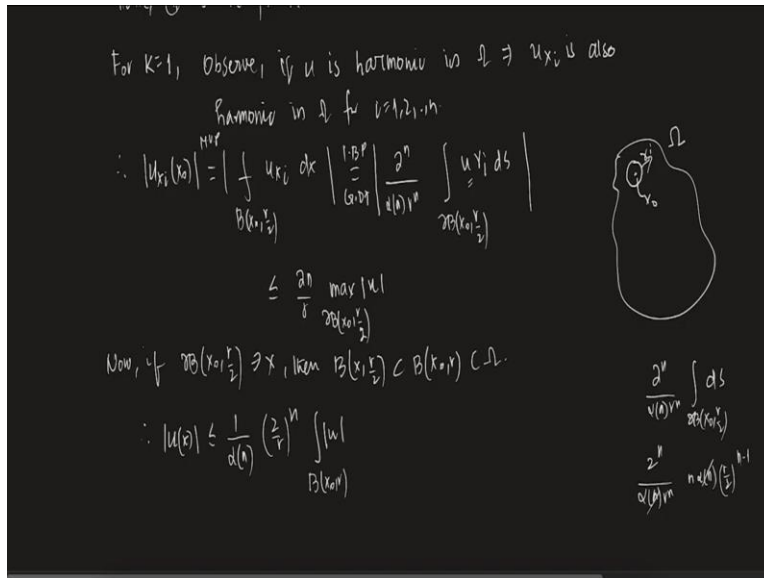 For K=1, Observe, if u is harmonic in Ω ⇒ u_{x_i} is also
harmonic in Ω for i=1,2,..,n.
∴ |u_{x_i}(x_0)| =^{MVP} | ⨍_{B(x_0, r/2)} u_{x_i} dx | =^{I.BP}_{G.DT} | 2^n/(α(n) r^n) ∫_{∂B(x_0, r/2)} u γ_i ds |
≤ 2n/r max_{∂B(x_0, r/2)} |u|
Now, if ∂B(x_0, r/2) ∋ x, then B(x, r/2) ⊂ B(x_0, r) ⊂ Ω.
∴ |u(x)| ≤ 1/α(n) (2/r)^n ∫_{B(x_0, r)} |u|
Ω
γ_i
x_0
2^n/(α(n) r^n) ∫_{∂B(x_0, r/2)} ds
2^n/(α(n) r^n) n α(n) (r/2)^{n-1}